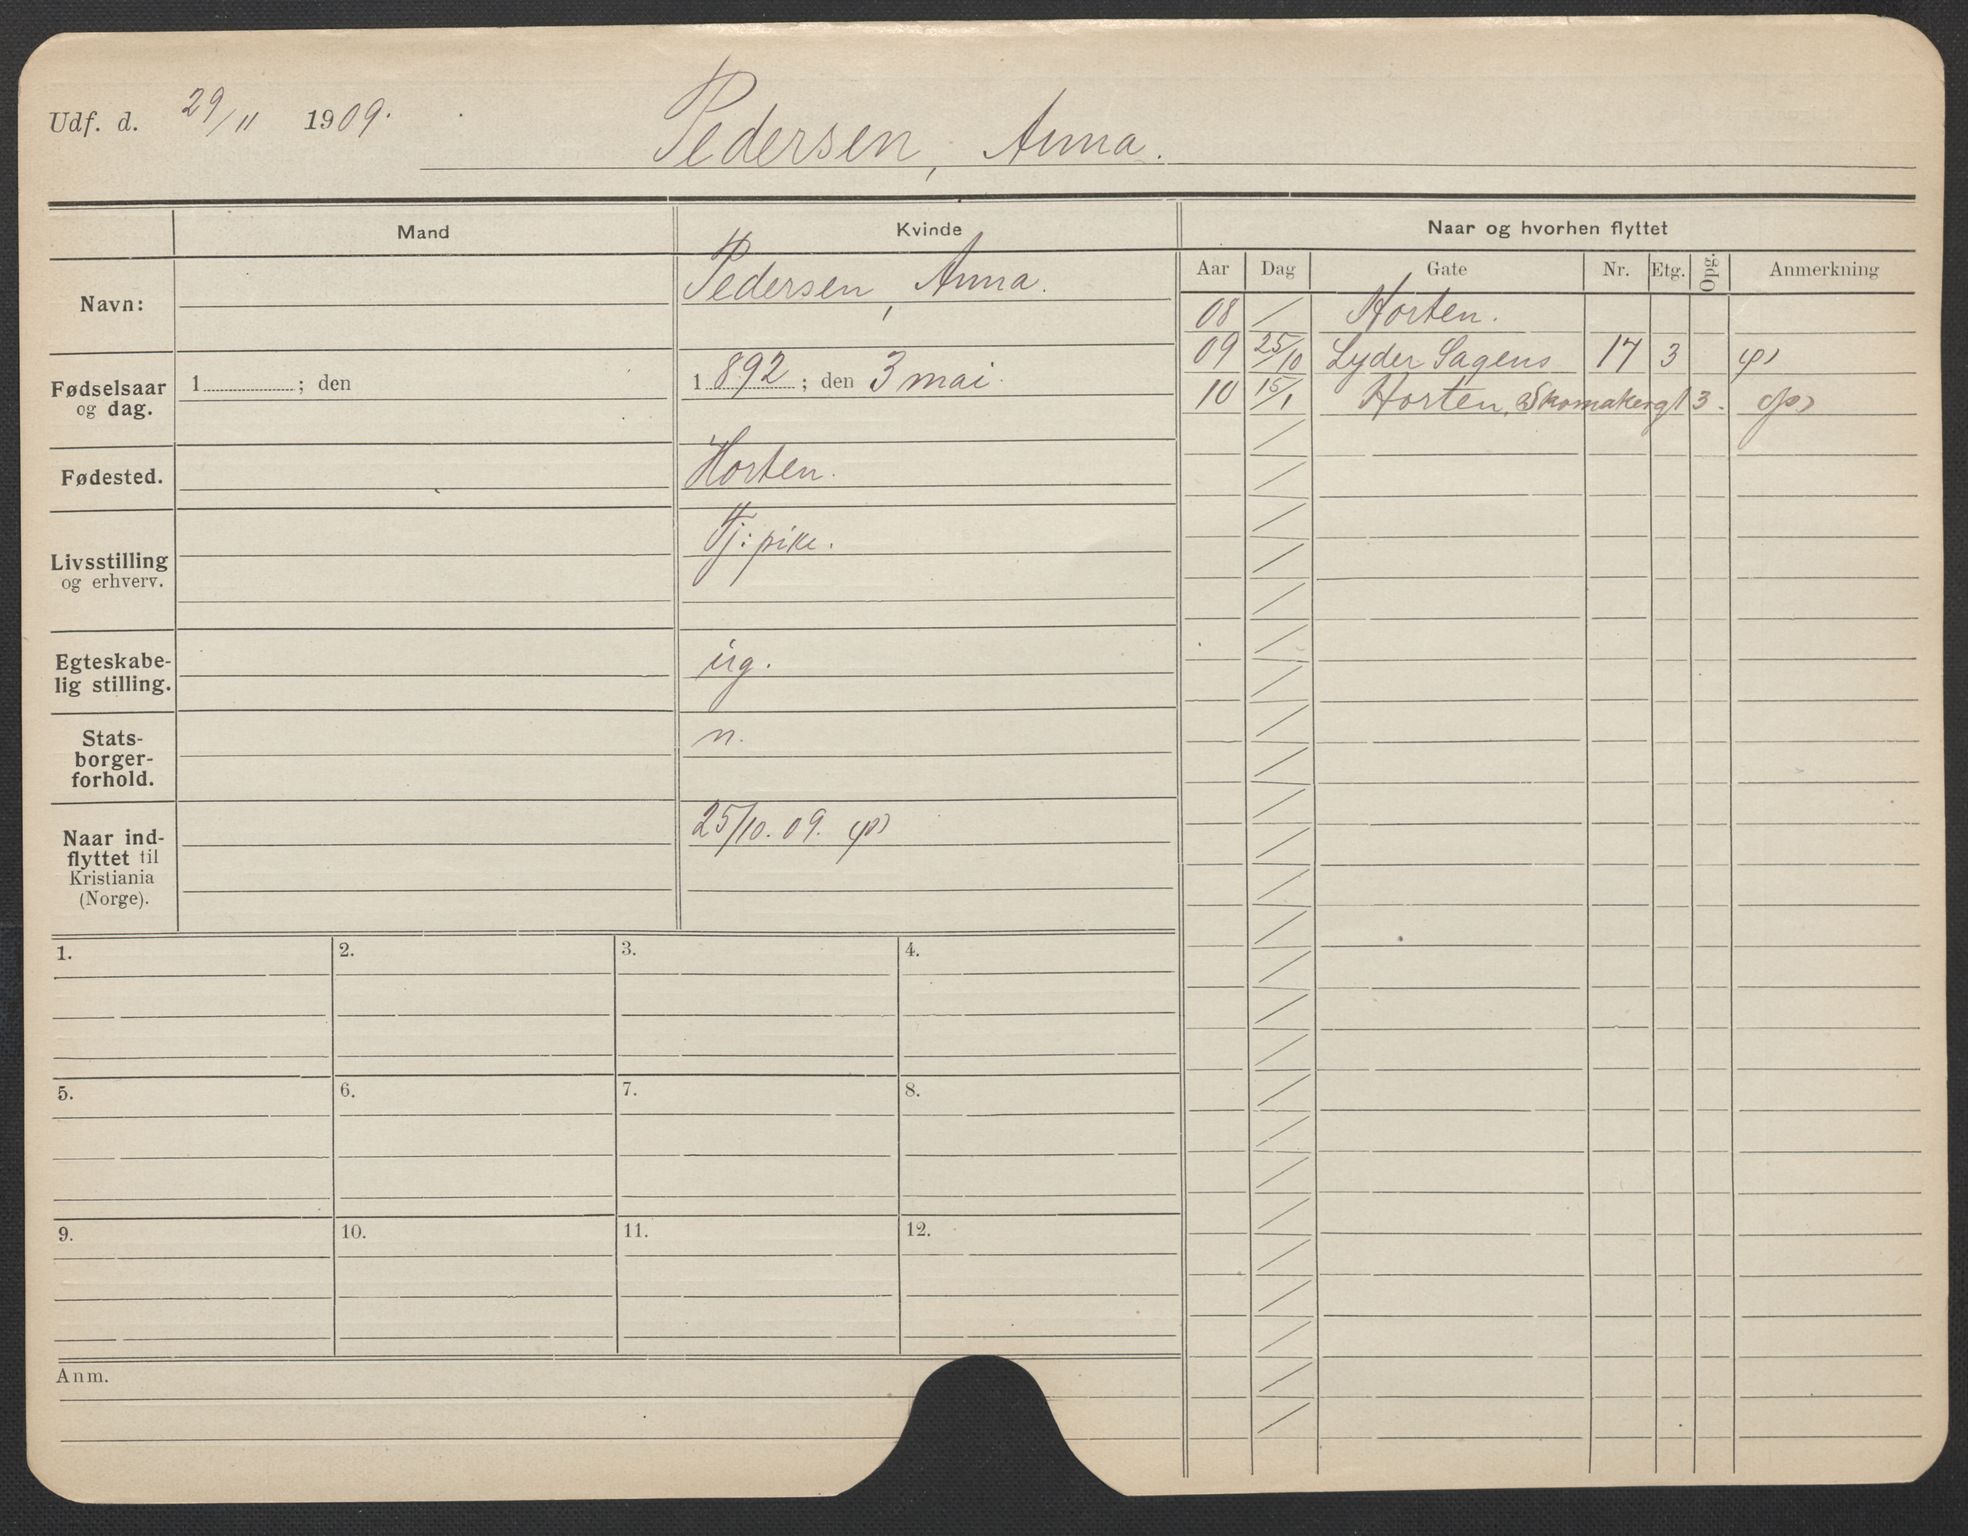 Udf. d. 29/11 1909.
Pedersen, Anna.
Mand Kvinde Naar og hvorhen flyttet
Aar Dag Gate Nr. Etg. Opg. Anmerkning
Navn: Pedersen, Anna.
Fødselsaar og dag. 1 ; den 1892; den 3 mai.
Fødested. Horten.
Livsstilling og erhverv. Tj: pike.
Egteskabe-
lig stilling. ug.
Stats-
borger-
forhold. n.
Naar ind-
flyttet til
Kristiania
(Norge). 25/10. 09.
08 / Horten.
09 25/10 Lyder Sagens 17 3
10 15/1 Horten, Skomakergt 3.
1. 2. 3. 4.
5. 6. 7. 8.
9. 10. 11. 12.
Anm.